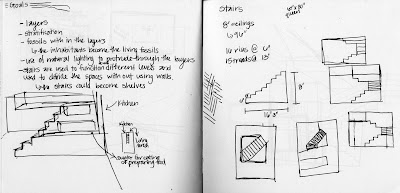 Goals
- layers
- stratification
- fossils with in the layers
↳ the inhabitants become the living fossils
- use of natural lighting to protrude through the layers
- stairs are used to function different levels and
used to divide the spaces with out using walls.
↳ the stairs could become shelves
Kitchen
Kitchen
living
space
counter for eating
or preparing food
Stairs
8' ceilings
↳ 96"
16 rises @ 6"
15 treads @ 13"
8'
16'3"